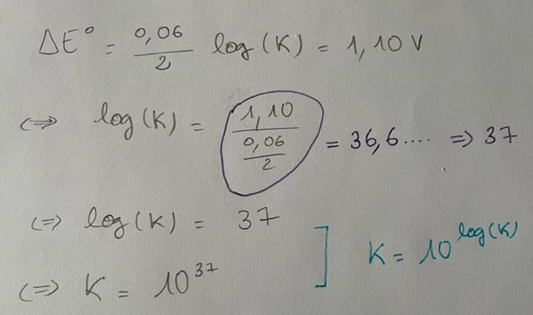 ΔE° = 0,06/2 log(K) = 1,10 V
<=> log(K) = 1,10/(0,06/2) = 36,6.... => 37
<=> log(K) = 37
<=> K = 10^37 ] K = 10^log(K)